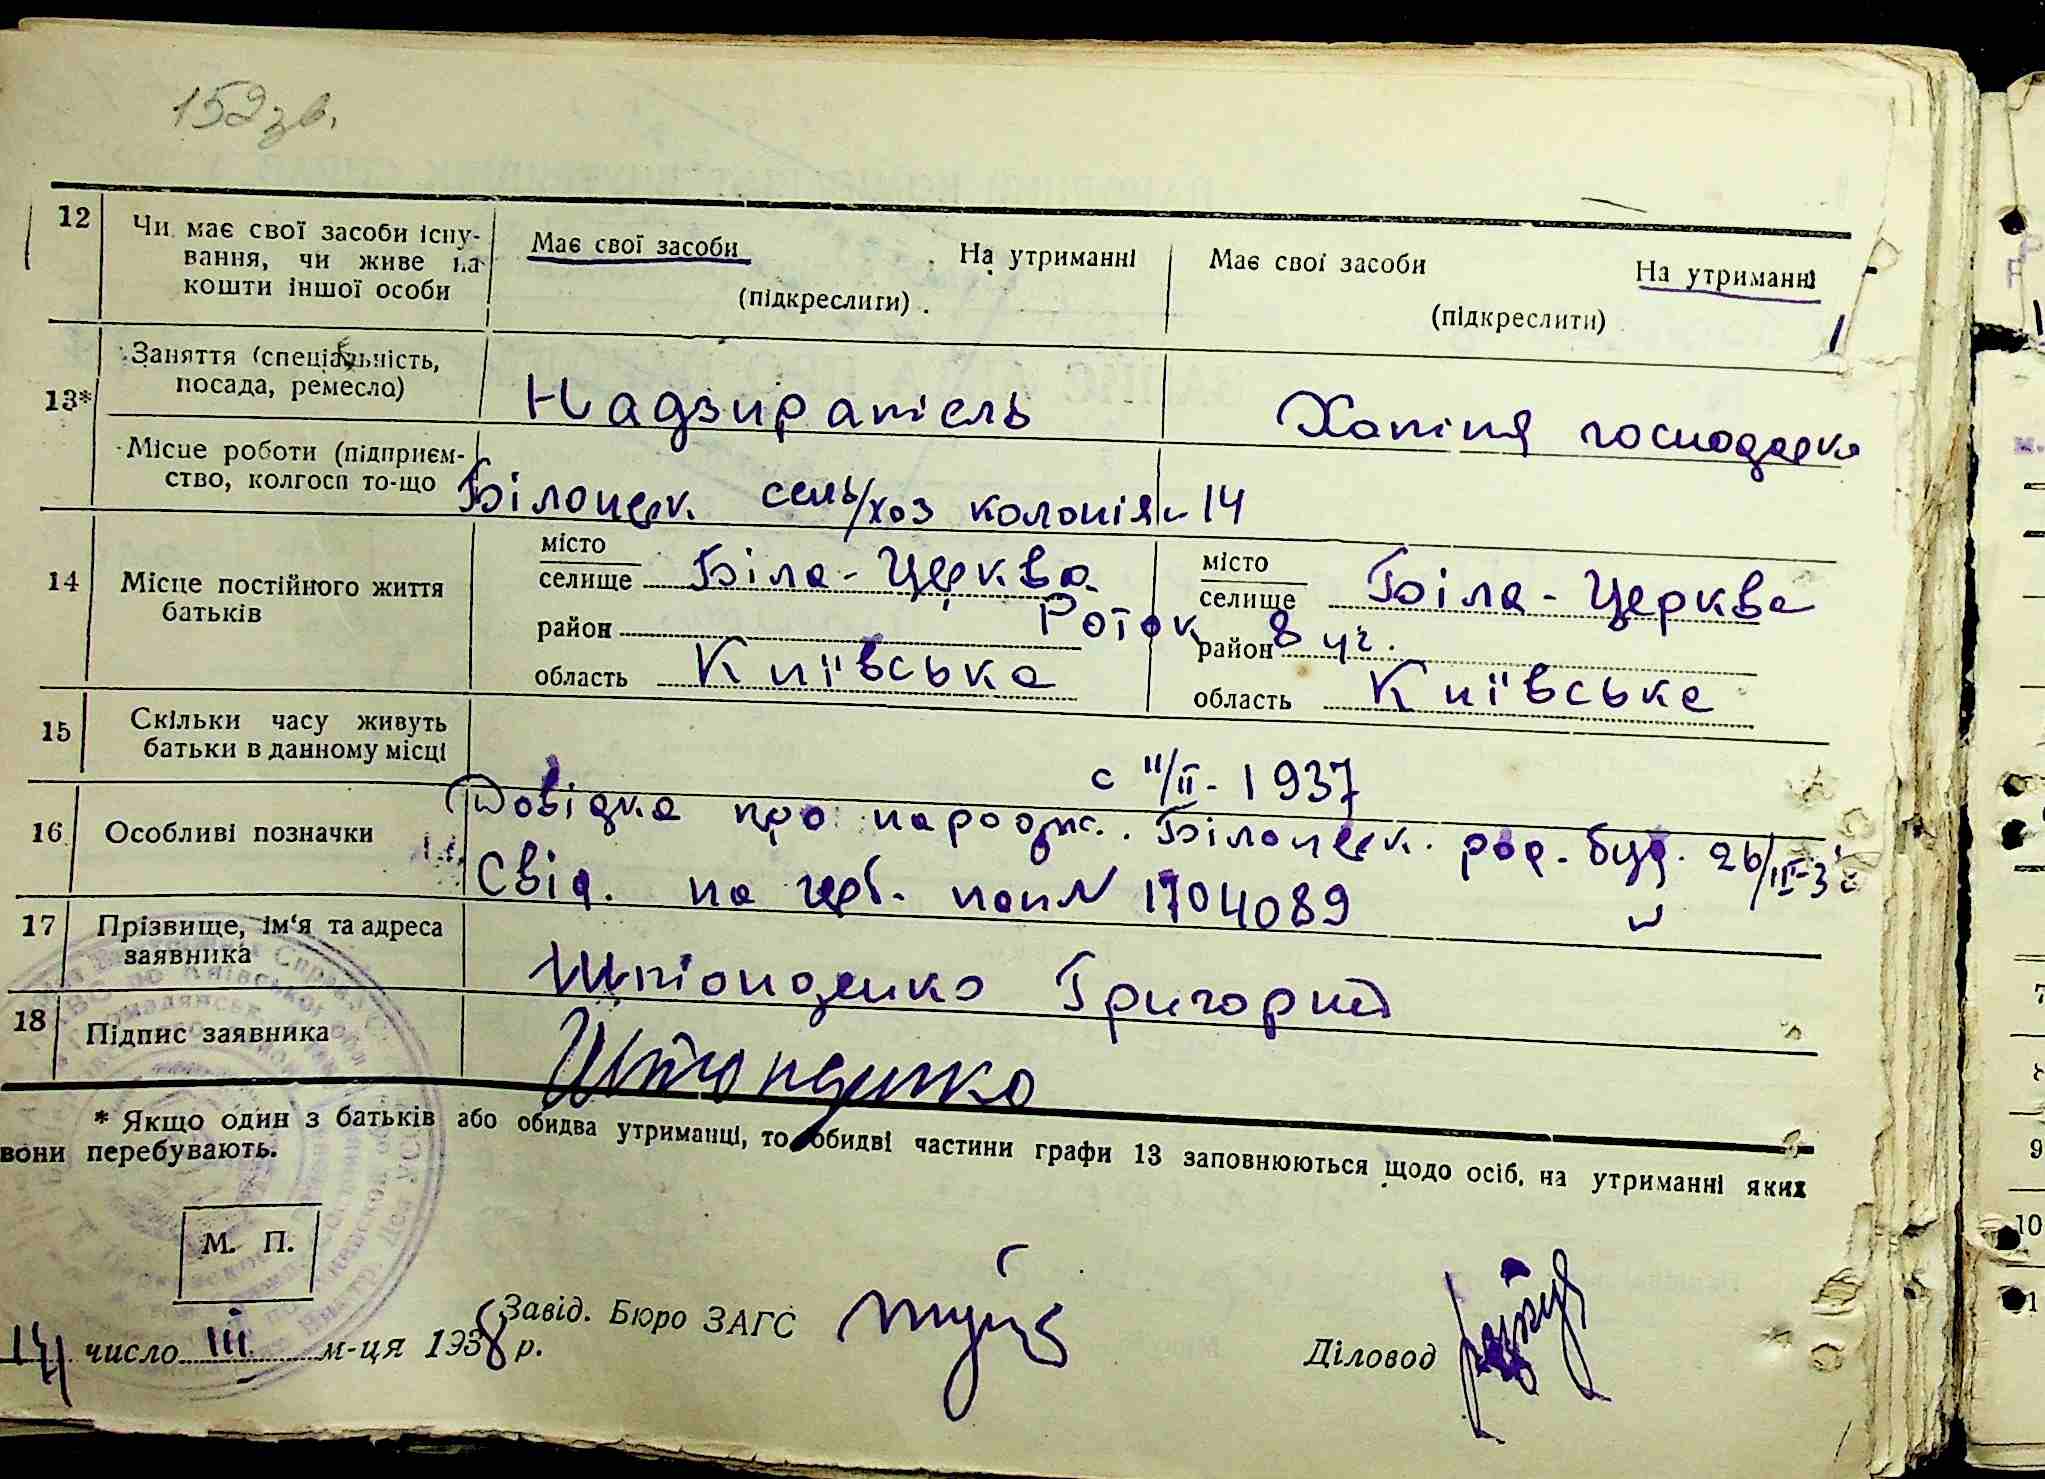 152зв.
12 Чи має свої засоби існу- Має свої засоби На утриманні Має свої засоби На утриманні
вання, чи живе на
кошти іншої особи (підкреслити). (підкреслити)
13* Заняття (спеціальність,
посада, ремесло) Надзиратель Хатня господарка
Місце роботи (підприєм-
ство, колгосп то-що Білоцерк. сель/хоз колонія 14
14 Місце постійного життя
батьків
місто
селище Біла-Церква
район Роток
область Київська
місто
селище Біла-Церква
район 8 уч.
область Київська
15 Скільки часу живуть
батьки в данному місці с 11/II-1937
16 Особливі позначки Довідка про народж. Білоцерк. род. буд. 26/III-3
Свід. на герб. пап N 1704089
17 Прізвище, ім'я та адреса
заявника Штонденко Григорий
18 Підпис заявника Штонденко
* Якщо один з батьків або обидва утриманці, то обидві частини графи 13 заповнюються щодо осіб, на утриманні яких
вони перебувають.
М. П.
число III м-ця 1938 р. Завід. Бюро ЗАГС Діловод